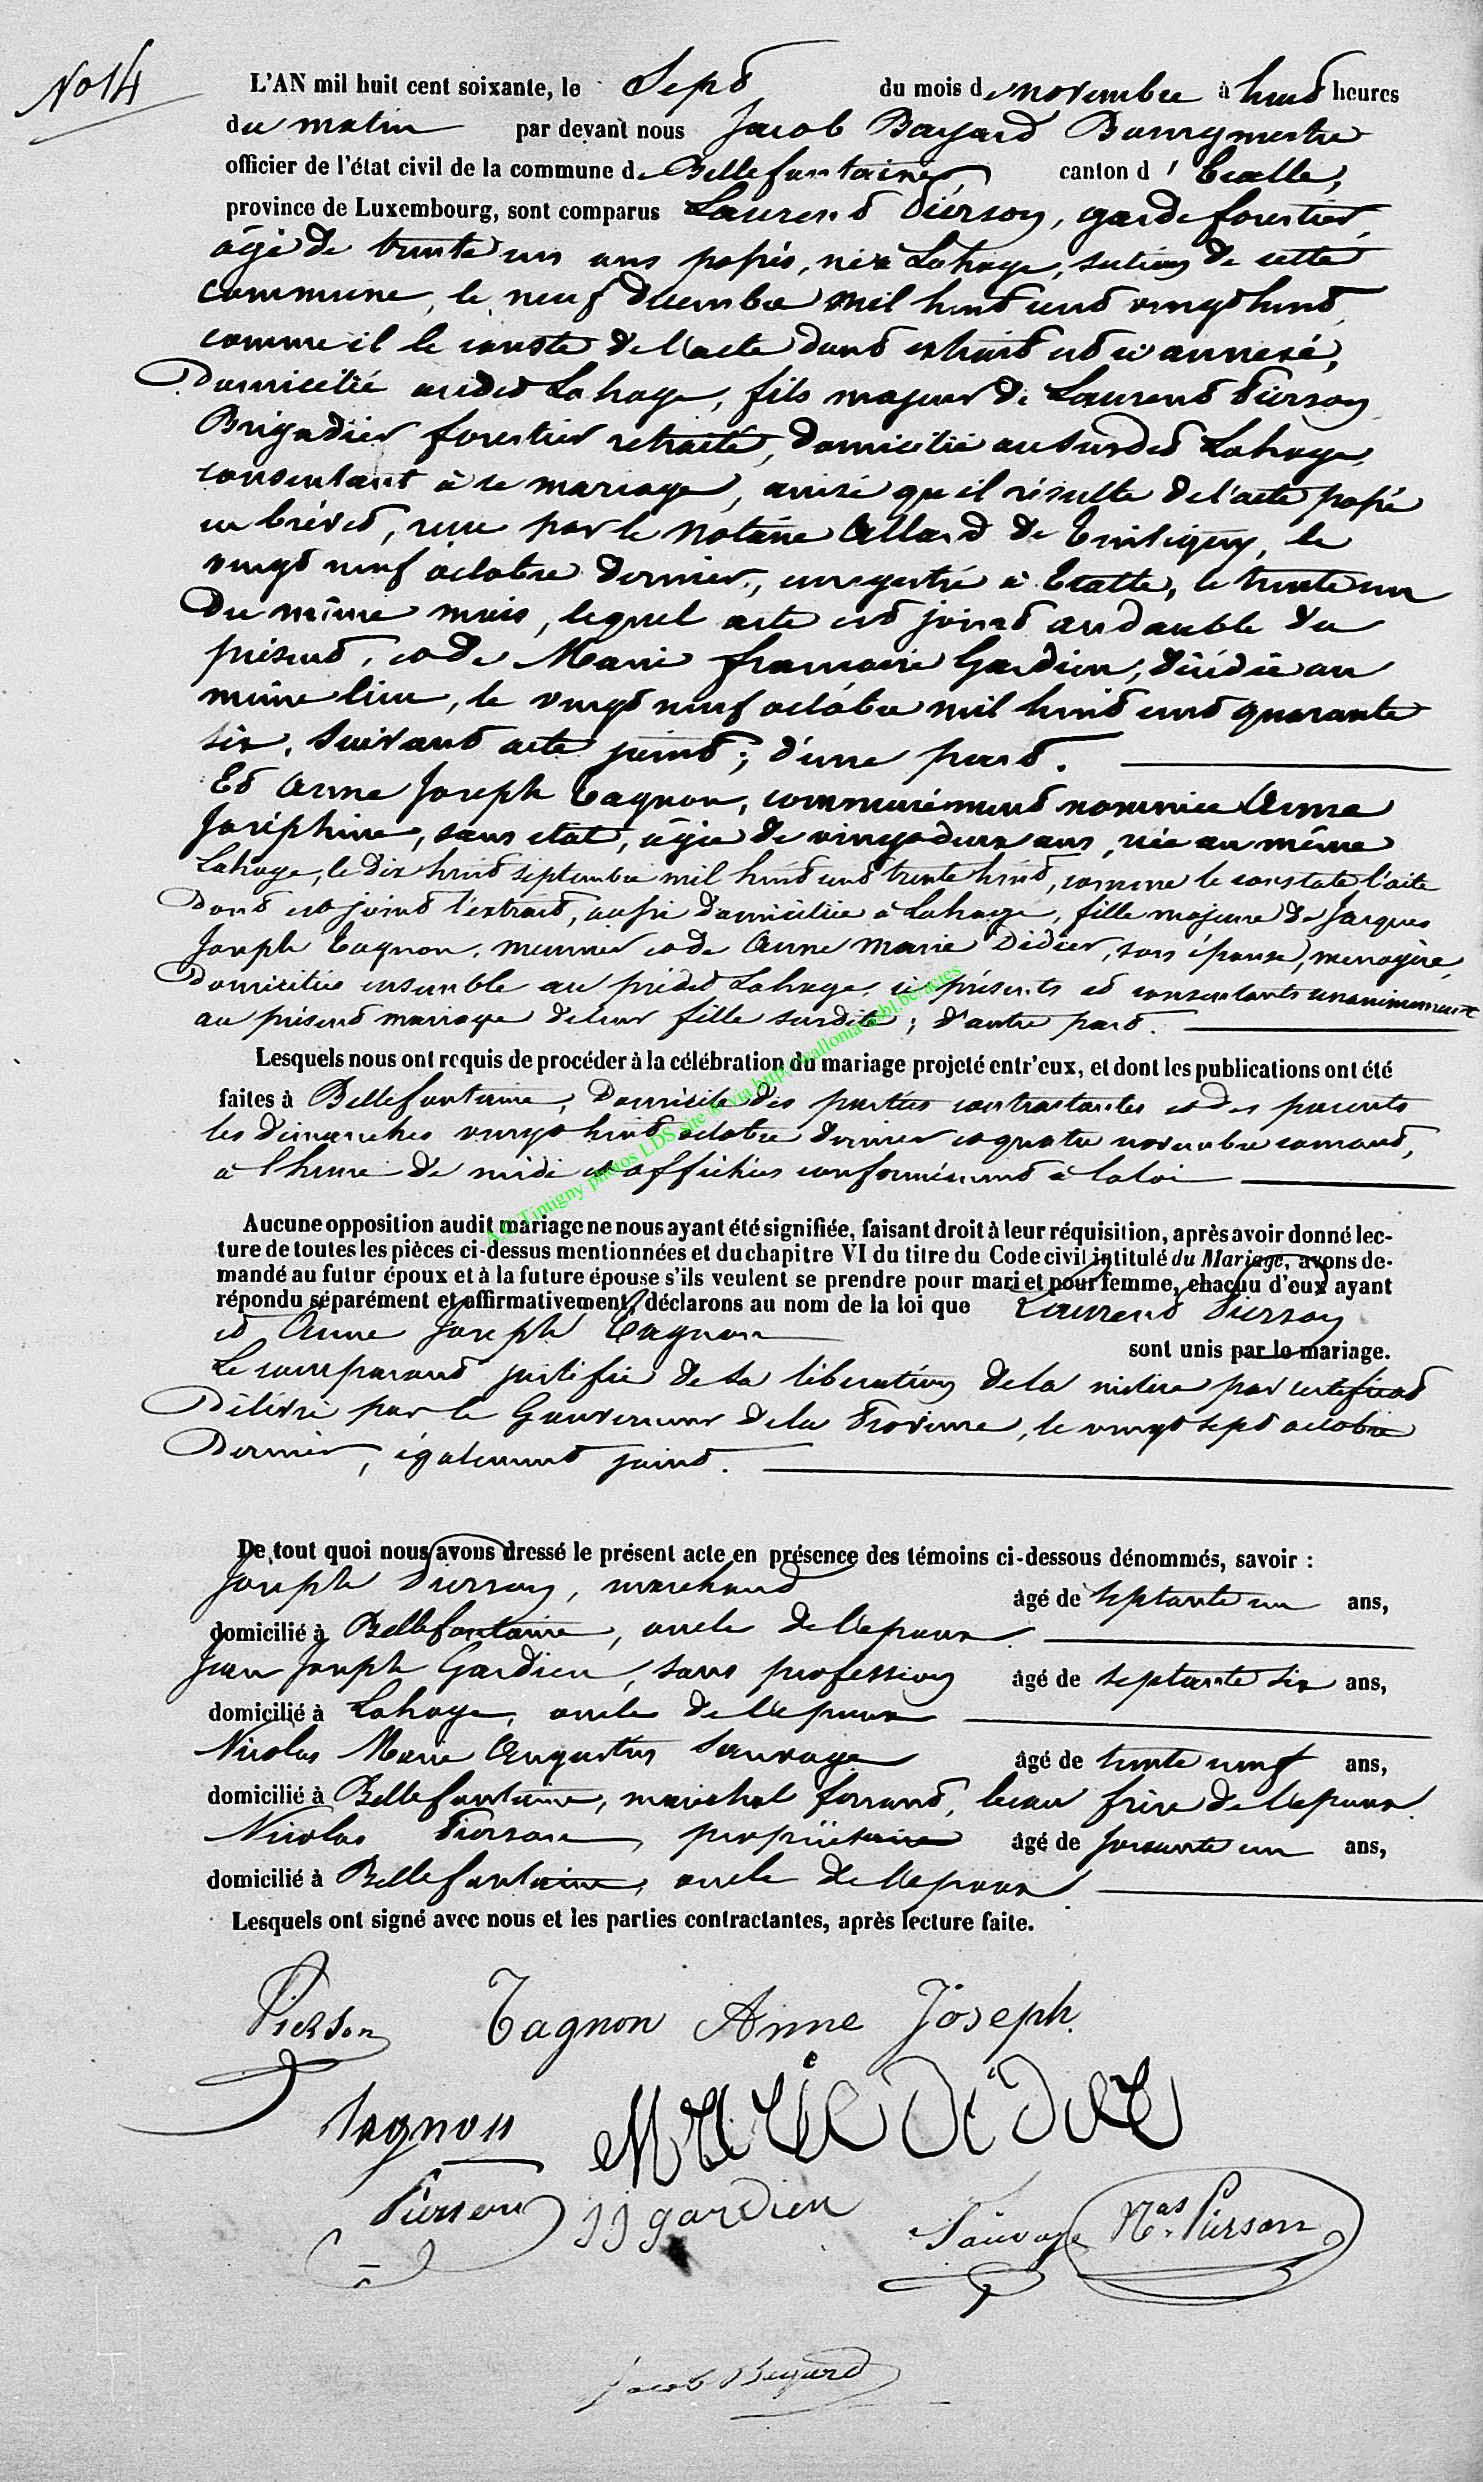 No 14
L'AN mil huit cent soixante, le Sept du mois de novembre à huit heures
du matin par devant nous Jacob Bayard Bourgmestre
officier de l'état civil de la commune de Bellefontaine, canton d'Etalle,
province de Luxembourg, sont comparus Laurent Pierson, garde forestier,
âgé de trente un ans passés, né à Lahage, section de cette
commune, le neuf décembre mil huit cent vingt huit,
comme il le conste de l'acte dont extrait est ci annexé,
domicilié audit Lahage, fils majeur de Laurent Pierson
Brigadier forestier retraité, domicilié au susdit Lahage,
consentant à ce mariage, ainsi qu'il résulte de l'acte passé
en brévet, reçu par le Notaire Allard de Tintigny, le
vingt neuf octobre dernier, enregistré à Etalle, le trente un
du même mois, lequel acte est joint au double du
présent, et de Marie françoise Gardien, décédée au
même lieu, le vingt neuf octobre mil huit cent quarante
six, suivant acte joint; d'une part.
Et Anne Joseph Tagnon, communément nommée Anne
Joséphine, sans état, âgée de vingt deux ans, née au même
Lahage, le dix huit septembre mil huit cent trente huit, comme le constate l'acte
dont est joint l'extrait, aussi domiciliée à Lahage, fille majeure de Jacques
Joseph Tagnon, meunier et de Anne Marie Didier, son épouse, ménagère,
domiciliés ensemble au prédit Lahage, ici présents et consentants unanimement
au présent mariage de leur fille susdite; d'autre part.
Lesquels nous ont requis de procéder à la célébration du mariage projeté entr'eux, et dont les publications ont été
faites à Bellefontaine, domicile des parties contractantes et des parents
les dimanches vingt huit octobre dernier et quatre novembre courant,
à l'heure de midi et affichées conformément à la loi
A.C Tintigny photos LDS site © via http://wallonia-asbl.be/actes
Aucune opposition audit mariage ne nous ayant été signifiée, faisant droit à leur réquisition, après avoir donné lec-
ture de toutes les pièces ci-dessus mentionnées et du chapitre VI du titre du Code civil intitulé du Mariage, avons de-
mandé au futur époux et à la future épouse s'ils veulent se prendre pour mari et pour femme, chacun d'eux ayant
répondu séparément et affirmativement, déclarons au nom de la loi que Laurent Pierson
et Anne Joseph Tagnon
sont unis par le mariage.
Le comparant justifie de sa libération de la milice par certificat
délivré par le Gouverneur de la Province, le vingt sept octobre
dernier, également joint.
De tout quoi nous avons dressé le présent acte en présence des témoins ci-dessous dénommés, savoir :
Joseph Pierson, marchand âgé de septante un ans,
domicilié à Bellefontaine, oncle de l'époux.
Jean Joseph Gardien, sans profession âgé de septante six ans,
domicilié à Lahage, oncle de l'époux
Nicolas Marie Augustin Sauvage âgé de trente neuf ans,
domicilié à Bellefontaine, maréchal ferrant, beau frère de l'époux.
Nicolas Pierson, propriétaire âgé de soixante un ans,
domicilié à Bellefontaine, oncle de l'époux
Lesquels ont signé avec nous et les parties contractantes, après lecture faite.
Pierson Tagnon Anne Joseph
Tagnon Marie Didier
Pierson JJ gardien Sauvage Nas Pierson
Jacob Bayard